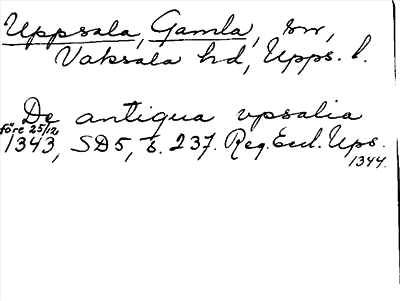 Uppsala, Gamla, sn,
Vaksala hd, Upps. l.
De antiqua vpsalia
före 25/12
1343, SD5, s. 237. Reg. Eccl. Ups.
1344.